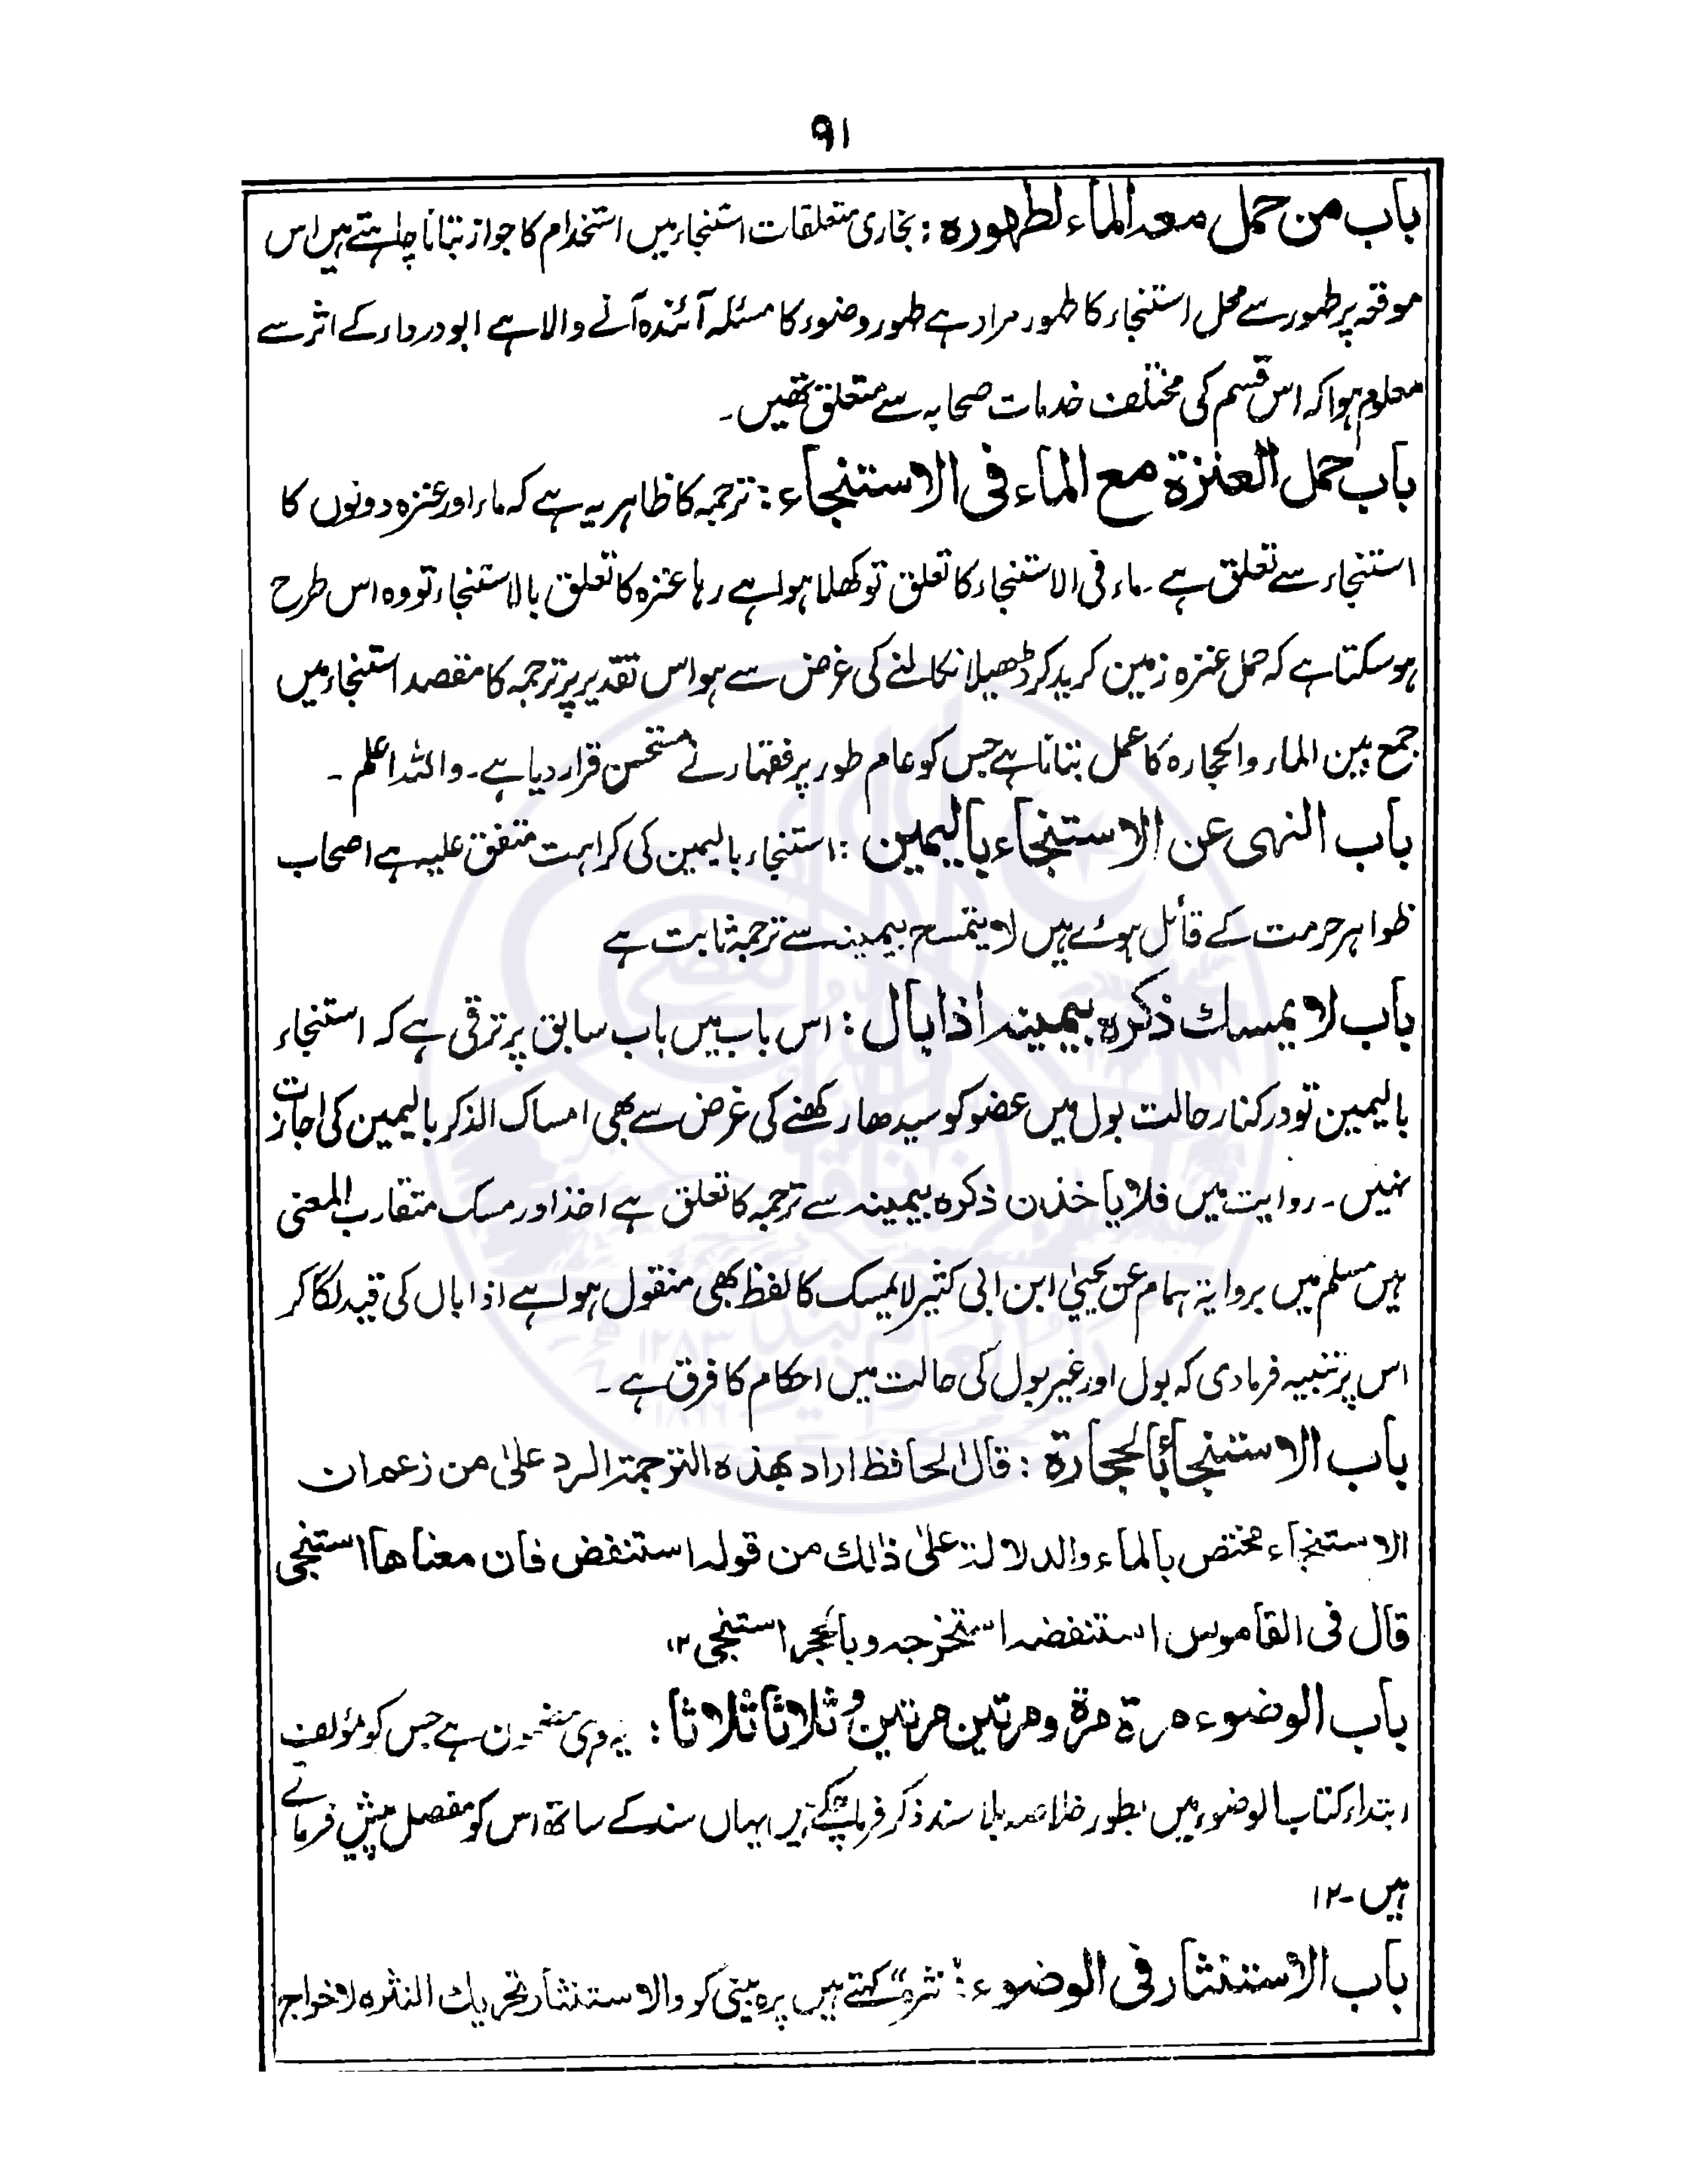 ۹۱
باب من حمل معه الماء لطهوره : بخاری متعلقات استنجاء میں استخدام کا جواز بتانا چاہتے ہیں اس
موقعہ پر طہور سے محل استنجاء کا طہور مراد ہے طہور وضوء کا مسئلہ آئندہ آنے والا ہے ابودرداء کے اثر سے
معلوم ہوا کہ اس قسم کی مختلف خدمات صحابہ سے متعلق تھیں ۔
باب حمل العنزة مع الماء فی الاستنجاء : ترجمہ کا ظاہر یہ ہے کہ ماء اور عنزہ دونوں کا
استنجاء سے تعلق ہے ۔ ماء فی الاستنجاء کا تعلق تو کھلا ہوا ہے رہا عنزہ کا تعلق بالاستنجاء تو وہ اس طرح
ہو سکتا ہے کہ حمل عنزہ زمین کرید کر ڈھیلا نکالنے کی غرض سے ہو اس تقدیر پر ترجمہ کا مقصد استنجاء میں
جمع بین الماء والحجارہ کا عمل بتانا ہے جس کو عام طور پر فقہاء نے مستحسن قرار دیا ہے ۔ واللہ اعلم ۔
باب النہی عن الاستنجاء بالیمین : استنجاء بالیمین کی کراہت متفق علیہ ہے اصحاب
ظواہر حرمت کے قائل ہوئے ہیں لا یتمسح بیمینہ سے ترجمہ ثابت ہے
باب لا یمسك ذکره بیمینه اذا بال : اس باب میں باب سابق پر ترقی ہے کہ استنجاء
بالیمین تو درکنار حالت بول میں عضو کو سیدھا رکھنے کی غرض سے بھی امساک الذکر بالیمین کی اجازت
نہیں ۔ روایت میں فلا یاخذن ذکرہ بیمینہ سے ترجمہ کا تعلق ہے اخذ اور مسک متقارب المعنی
ہیں مسلم میں بروایۃ ہمام عن یحییٰ ابن ابی کثیر لا یمسک کا لفظ بھی منقول ہوا ہے اذا بال کی قید لگا کر
اس پر تنبیہ فرمادی کہ بول اور غیر بول کی حالت میں احکام کا فرق ہے ۔
باب الاستنجاء بالحجارة : قال الحافظ اراد بهذه الترجمة الرد علیٰ من زعم ان
الاستنجاء مختص بالماء والدلالة علیٰ ذالك من قوله استنفض فان معناها استنجی
قال فی القاموس استنفضه استخرجه وبالحجر استنجی ۱۲
باب الوضوء مرة مرة ومرتین مرتین وثلاثا ثلاثا : یہ وہی مضمون ہے جس کو مؤلف
ابتداء کتاب الوضوء میں بطور خلاصہ بلا سند ذکر فرما چکے ہیں یہاں سند کے ساتھ اس کو مفصل پیش فرماتے
ہیں ۔ ۱۲
باب الاستنثار فی الوضوء : نثرہ کہتے ہیں پرہ بینی کو والاستنثار تحریك النثره لاخراج